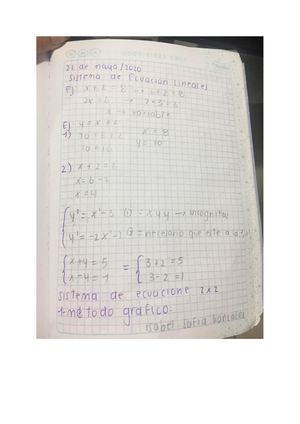 21 de mayo/2020
Sistema de Ecuación Lineales
Ej x + 2 = 8 → 6 + 2 = 8
2x = 6 → 2·3 = 6
x → variable
Ej y = x + 2
1) 10 = 8 + 2 x = 8
10 = 10 y = 10
2) x + 2 = 6
x = 6 - 2
x = 4
① = x y y → incognitas
② = necesario que este a la
x + y = 5 = 3 + 2 = 5
x - y = 1 3 - 2 = 1
Sistema de ecuacione 2x2
método gráfico:
Isabel Sofia